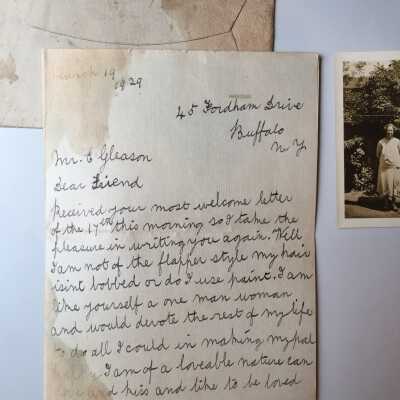 March 19
1929
45 Fordham Drive
Buffalo
N Y
Mr. E Gleason
Dear Friend
Received your most welcome letter
of the 17th this morning so I take the
pleasure in writing you again. Well
I am not of the flapper style my hair
isint bobbed or do I use paint. I am
like yourself a one man woman
and would devote the rest of my life
to do all I could in making my pal
I am of a loveable nature can
and kiss and like to be loved